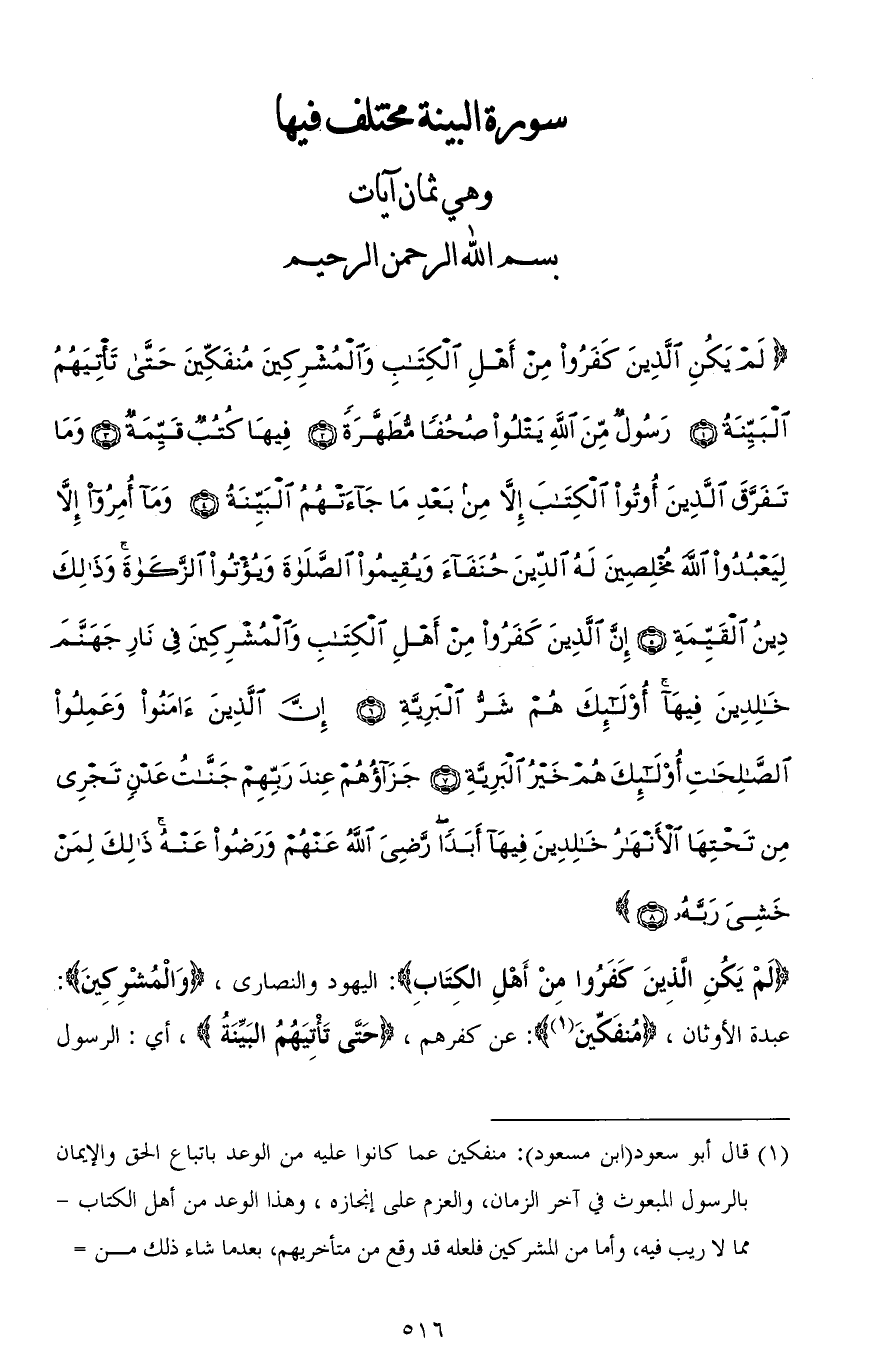 سورة البينة مختلف فيها
وهي ثمان آيات
بسم الله الرحمن الرحيم
﴿ لَمْ يَكُنِ ٱلَّذِينَ كَفَرُوا۟ مِنْ أَهْلِ ٱلْكِتَـٰبِ وَٱلْمُشْرِكِينَ مُنفَكِّينَ حَتَّىٰ تَأْتِيَهُمُ
ٱلْبَيِّنَةُ ۝١ رَسُولٌ مِّنَ ٱللَّهِ يَتْلُوا۟ صُحُفًا مُّطَهَّرَةً ۝٢ فِيهَا كُتُبٌ قَيِّمَةٌ ۝٣ وَمَا
تَفَرَّقَ ٱلَّذِينَ أُوتُوا۟ ٱلْكِتَـٰبَ إِلَّا مِنۢ بَعْدِ مَا جَآءَتْهُمُ ٱلْبَيِّنَةُ ۝٤ وَمَآ أُمِرُوٓا۟ إِلَّا
لِيَعْبُدُوا۟ ٱللَّهَ مُخْلِصِينَ لَهُ ٱلدِّينَ حُنَفَآءَ وَيُقِيمُوا۟ ٱلصَّلَوٰةَ وَيُؤْتُوا۟ ٱلزَّكَوٰةَ ۚ وَذَٰلِكَ
دِينُ ٱلْقَيِّمَةِ ۝٥ إِنَّ ٱلَّذِينَ كَفَرُوا۟ مِنْ أَهْلِ ٱلْكِتَـٰبِ وَٱلْمُشْرِكِينَ فِى نَارِ جَهَنَّمَ
خَـٰلِدِينَ فِيهَآ ۚ أُو۟لَـٰٓئِكَ هُمْ شَرُّ ٱلْبَرِيَّةِ ۝٦ إِنَّ ٱلَّذِينَ ءَامَنُوا۟ وَعَمِلُوا۟
ٱلصَّـٰلِحَـٰتِ أُو۟لَـٰٓئِكَ هُمْ خَيْرُ ٱلْبَرِيَّةِ ۝٧ جَزَآؤُهُمْ عِندَ رَبِّهِمْ جَنَّـٰتُ عَدْنٍ تَجْرِى
مِن تَحْتِهَا ٱلْأَنْهَـٰرُ خَـٰلِدِينَ فِيهَآ أَبَدًا ۖ رَّضِىَ ٱللَّهُ عَنْهُمْ وَرَضُوا۟ عَنْهُ ۚ ذَٰلِكَ لِمَنْ
خَشِىَ رَبَّهُۥ ۝٨ ﴾
﴿لَمْ يَكُنِ الَّذِينَ كَفَرُوا مِنْ أَهْلِ الكِتَابِ﴾: اليهود والنصارى ، ﴿وَالْمُشْرِكِينَ﴾:
عبدة الأوثان ، ﴿مُنفَكِّينَ(١)﴾: عن كفرهم ، ﴿حَتَّى تَأْتِيَهُمُ البَيِّنَةُ ﴾ ، أي : الرسول
(١) قال أبو سعود(ابن مسعود): منفكين عما كانوا عليه من الوعد باتباع الحق والإيمان
بالرسول المبعوث في آخر الزمان، والعزم على إنجازه ، وهذا الوعد من أهل الكتاب -
مما لا ريب فيه، وأما من المشركين فلعله قد وقع من متأخريهم، بعدما شاء ذلك مـــن =
٥١٦